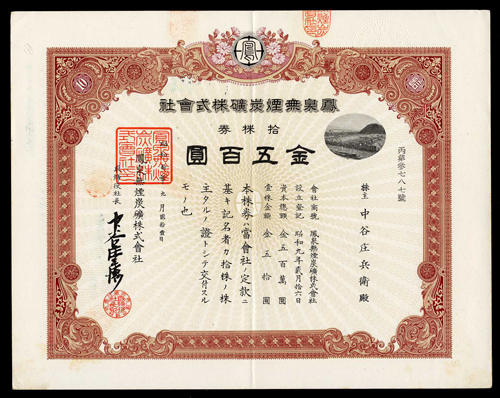 鳳
鳳泉無煙炭礦株式會社
拾株券
金五百圓
丙第參七八七號
株主 中谷庄兵衛殿
會社商號 鳳泉無煙炭礦株式會社
設立登記 昭和九年貳月拾六日
資本總額 金五百萬圓
壹株金額 金五拾圓
本株券ハ當會社ノ定款ニ
基キ記名者カ拾株ノ株
主タルノ證トシテ交付スル
モノ也
九月貳拾壹日
鳳泉無煙炭礦株式會社
取締役社長